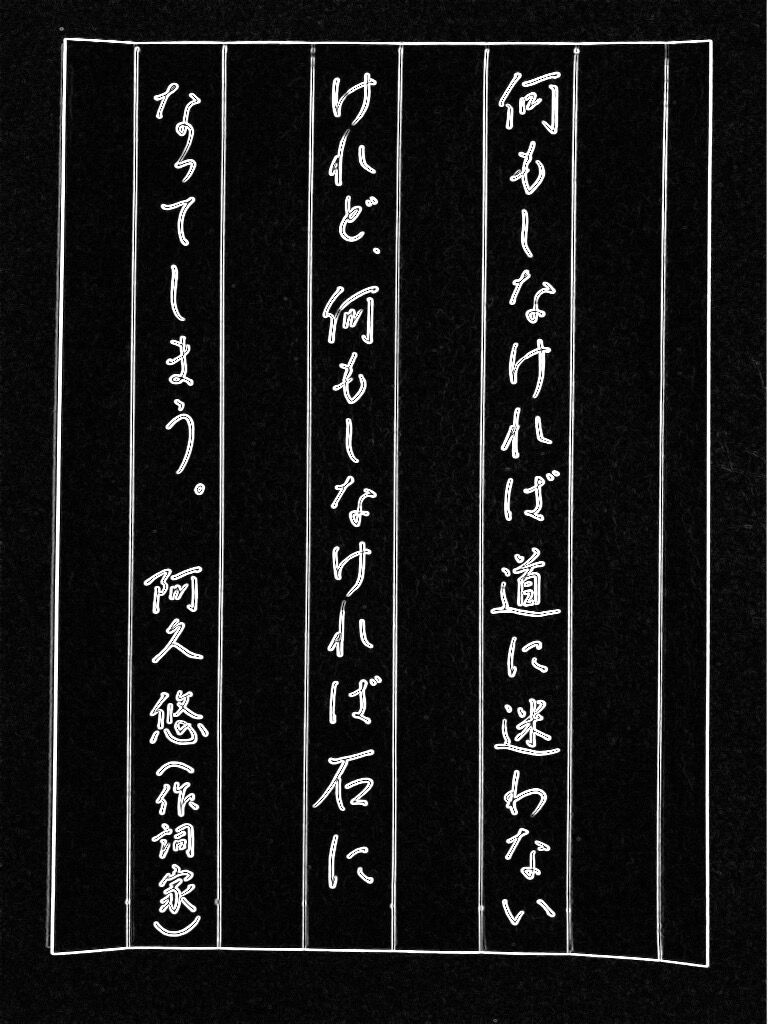 何もしなければ道に迷わない
けれど、何もしなければ石に
なってしまう。 阿久悠(作詞家)